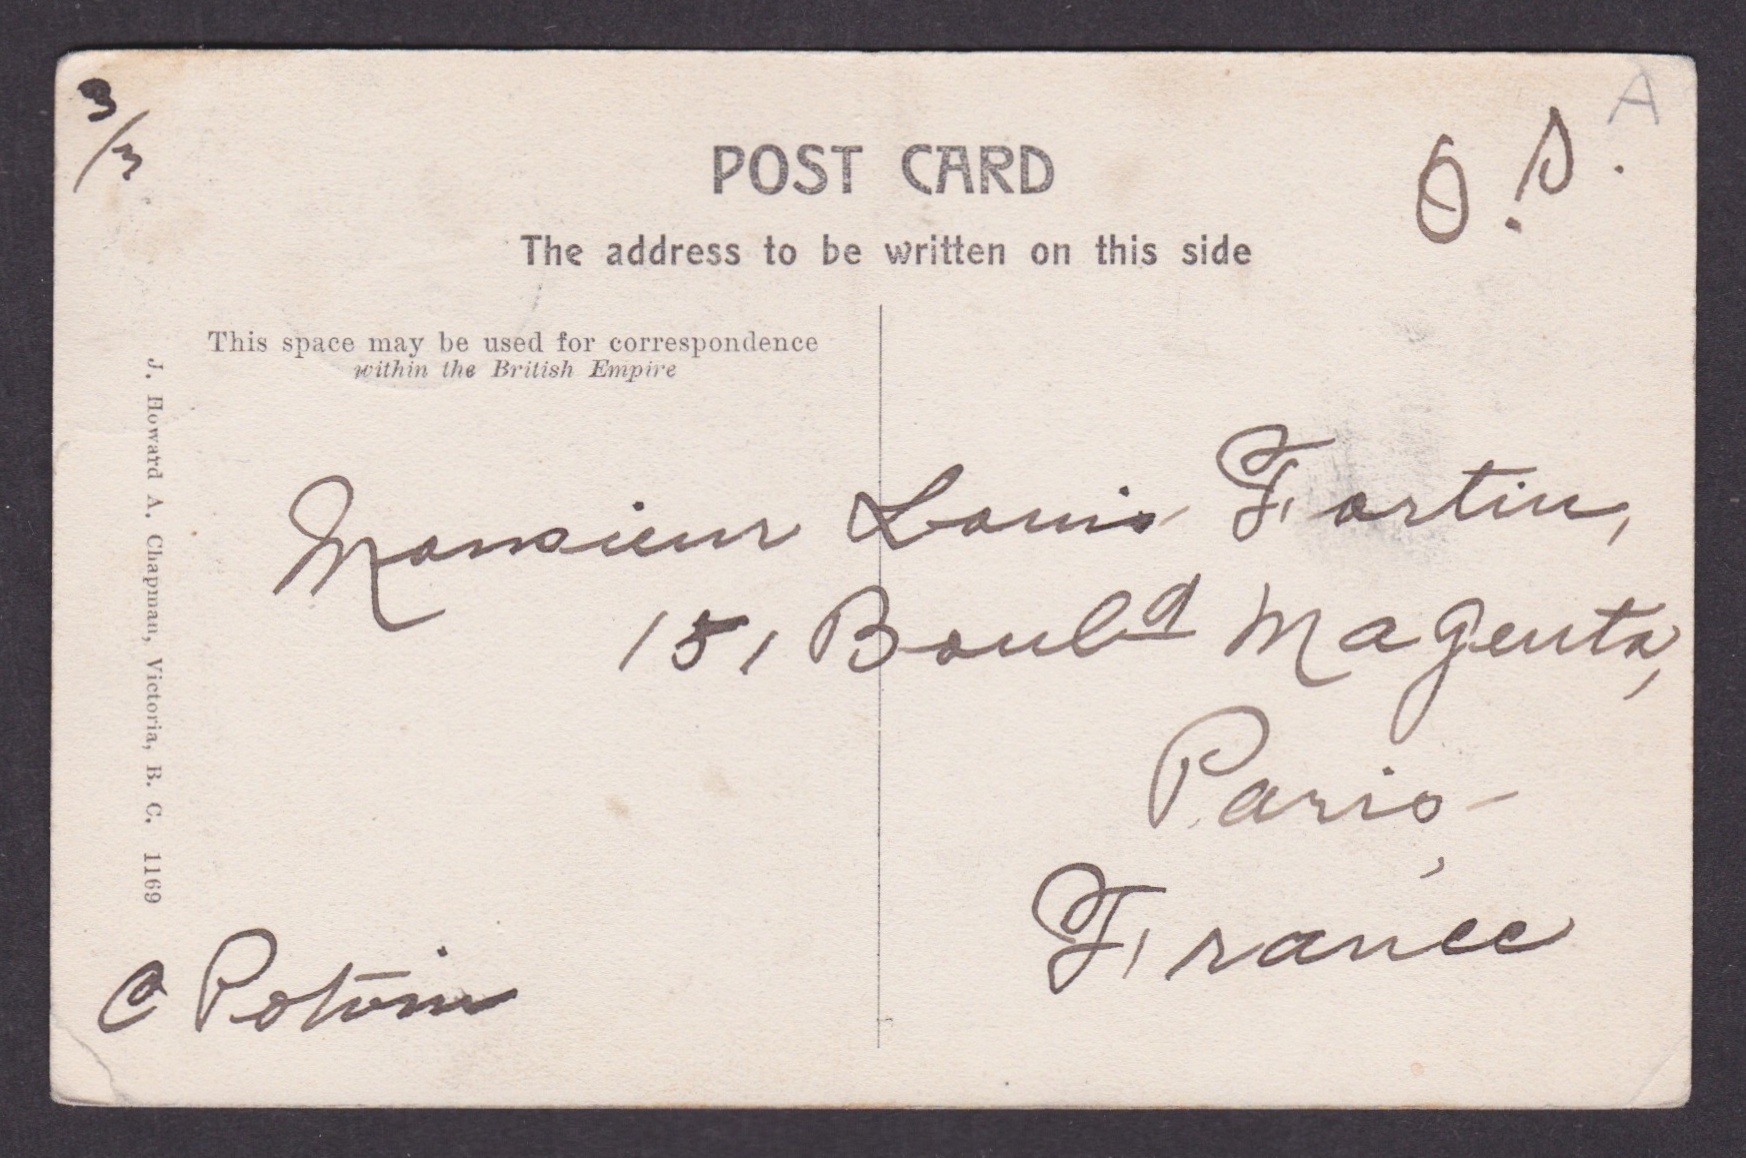 3/3
A
O.S.
POST CARD
The address to be written on this side
This space may be used for correspondence
within the British Empire
J. Howard A. Chapman, Victoria, B. C. 1169
Monsieur Louis Fortin,
151 Bould Magenta,
Paris
France
C Potvin